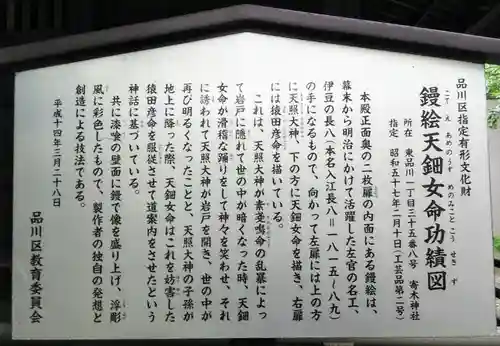 品川区指定有形文化財
こてえ あめのうずめのみことこうせきず
鏝絵天鈿女命功績図
所在 東品川一丁目三十五番八号 寄木神社
指定 昭和五十七年二月十日(工芸品第二号)
本殿正面奥の二枚扉の内面にある鏝絵は、
幕末から明治にかけて活躍した左官の名工、
伊豆の長八(本名入江長八=一八一五〜八九)
の手になるもので、向かって左扉には上の方
に天照大神、下の方に天鈿女命を描き、右扉
には猿田彦命を描いている。
これは、天照大神が素戔鳴命の乱暴によっ
て岩戸に隠れて世の中が暗くなった時、天鈿
女命が滑稽な踊りをして神々を笑わせ、それ
に誘われて天照大神が岩戸を開き、世の中が
再び明るくなったことと、天照大神の子孫が
地上に降った際、天鈿女命はこれを妨害した
猿田彦命を服従させて道案内をさせたという
神話に基づいている。
共に漆喰の壁面に鏝で像を盛り上げ、浮彫
風に彩色したもので、製作者の独自の発想と
創造による技法である。
平成十四年三月二十八日
品川区教育委員会